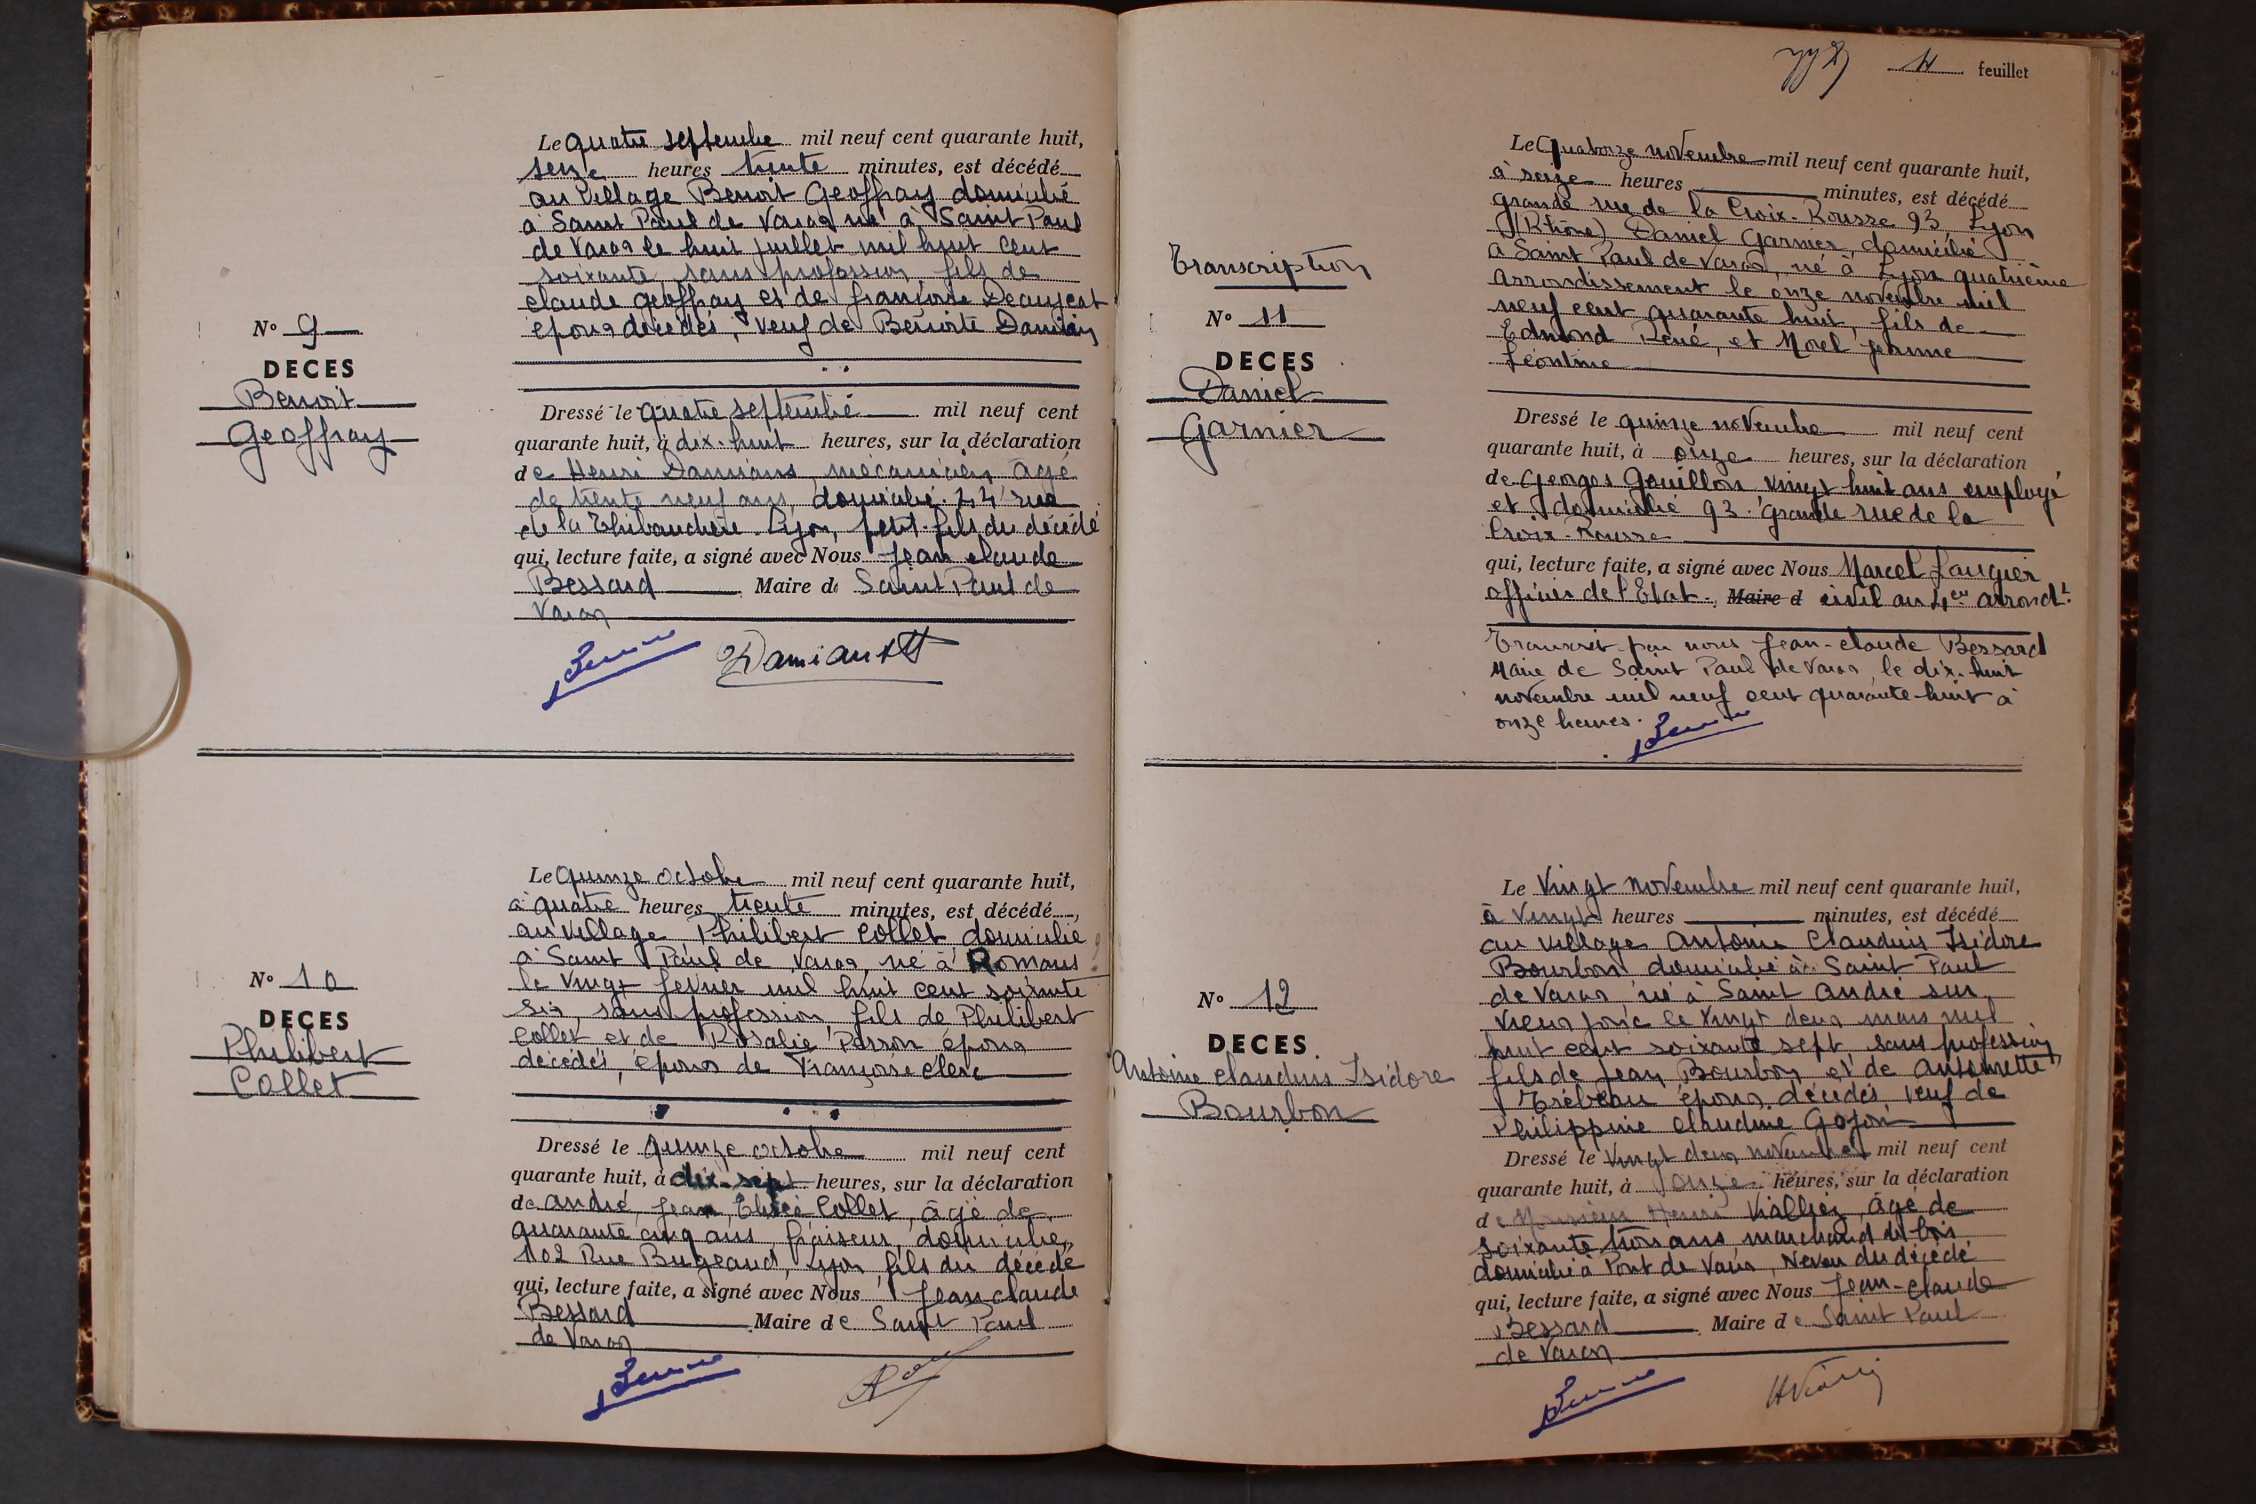 Le quatre septembre mil neuf cent quarante huit,
seize heures trente minutes, est décédé
au village Benoit Geoffray domicilié
à Saint Paul de Varax né à Saint Paul
de Varax le huit juillet mil huit cent
soixante, sans profession, fils de
claude geoffray et de françoise
epoux décédés, veuf de Benoite Damians
N° 9
DECES
Benoit
Geoffray
Dressé le quatre septembre mil neuf cent
quarante huit, à dix-huit heures, sur la déclaration
de Henri Damians, mécanicien âgé
de trente neuf ans, domicilié 44 rue
de la Thibaudière Lyon, petit-fils du décédé
qui, lecture faite, a signé avec Nous Jean claude
Bessard Maire de Saint Paul de
Varax
Damians H
Le quinze octobre mil neuf cent quarante huit,
à quatre heures trente minutes, est décédé,
au village Philibert Collet, domicilié
à Saint Paul de Varax, né à Romans
le vingt fevrier mil huit cent soixante
six, sans profession, fils de Philibert
Collet et de Rosalie Perron époux
décédés, époux de Françoise clerc
N° 10
DECES
Philibert
Collet
Dressé le quinze octobre mil neuf cent
quarante huit, à dix-sept heures, sur la déclaration
de andré, jean, Elisée Collet, âgé de
quarante cinq ans, fraiseur, domicilié,
102 Rue Bugeaud, Lyon, fils du décédé
qui, lecture faite, a signé avec Nous Jean claude
Bessard Maire de Saint Paul
de Varax
11 feuillet
Le Quatorze novembre mil neuf cent quarante huit,
à seize heures minutes, est décédé
grande rue de la Croix-Rousse 93, Lyon
(Rhône) Daniel Garnier, domicilié
à Saint Paul de Varax, né à Lyon quatrième
arrondissement le onze novembre mil
neuf cent quarante huit, fils de
Edmond René, et Morel jeanne
Léontine
Transcription
N° 11
DECES
Daniel
Garnier
Dressé le quinze novembre mil neuf cent
quarante huit, à onze heures, sur la déclaration
de Georges Gouillon vingt huit ans employé
et domicilié 93 grande rue de la
Croix-Rousse
qui, lecture faite, a signé avec Nous Marcel Laugier
officier de l'Etat- Maire d civil au 4em arrondt.
Transcrit par nous Jean-claude Bessard
Maire de Saint Paul de Varax, le dix-huit
novembre mil neuf cent quarante-huit à
onze heures.
Le vingt novembre mil neuf cent quarante huit,
à vingt heures minutes, est décédé
au village Antoine Claudius Isidore
Bourbon domicilié à Saint Paul
de Varax né à Saint André sur
vieux jonc le vingt deux mars mil
huit cent soixante sept, sans profession,
fils de Jean Bourbon et de Antoinette
Trébeau époux décédés veuf de
Philippine claudine Gojon
N° 12
DECES
Antoine claudius Isidore
Bourbon
Dressé le vingt deux novembre mil neuf cent
quarante huit, à onze heures, sur la déclaration
de Monsieur Henri Vialliez, âgé de
soixante trois ans, marchand de bois
domicilié à Pont de Vaux, Neveu du décédé
qui, lecture faite, a signé avec Nous Jean-claude
Bessard Maire de Saint Paul
de Varax